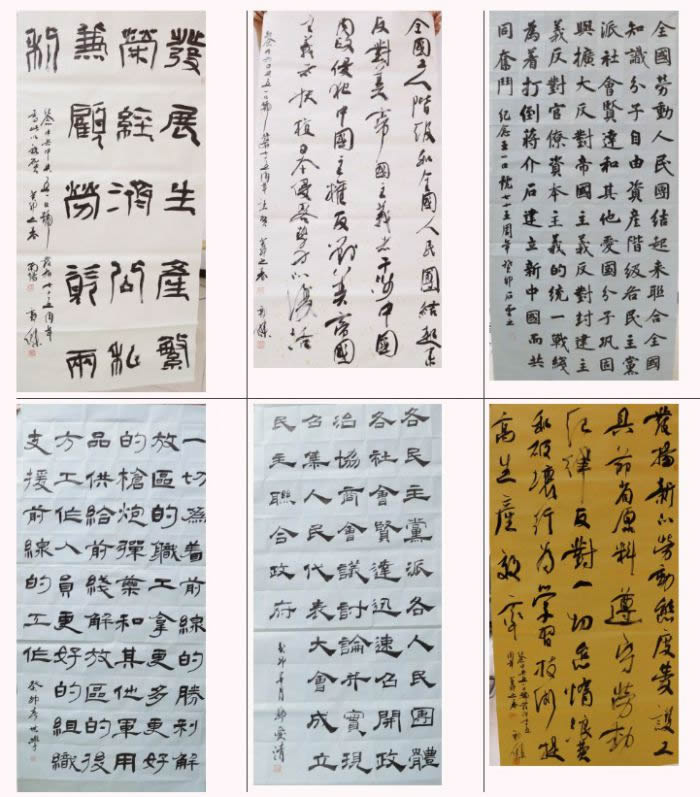 發展生產繁
榮經濟公私
兼顧勞資兩
利
癸卯之春
全國工人階級和全國人民團結起來
反對美帝國主義者干涉中國
內政侵犯中國主權反對美帝國
主義者扶植日本侵略勢力的復活
全國勞動人民團結起來聯合全國
知識分子自由資產階級各民主黨
派社會賢達和其他愛國分子鞏固
與擴大反對帝國主義反對封建主
義反對官僚資本主義的統一戰綫
為着打倒蔣介石建立新中國而共
同奮鬥 紀念五一口號七十五周年 癸卯
一切為着前線的勝利解
放區的職工拿更多更好
的槍炮彈藥和其他軍用
品供給前綫解放區的後
方工作人員更好的組織
支援前線的工作 癸卯
各民主黨派各人民團體
各社會賢達迅速召開政
治協商會議討論并實現
召集人民代表大會成立
民主聯合政府 癸卯年
發揚新的勞動態度愛護工
具節省原料遵守勞動
紀律反對一切怠惰浪費
和破壞行為學習技術提
高生產效率